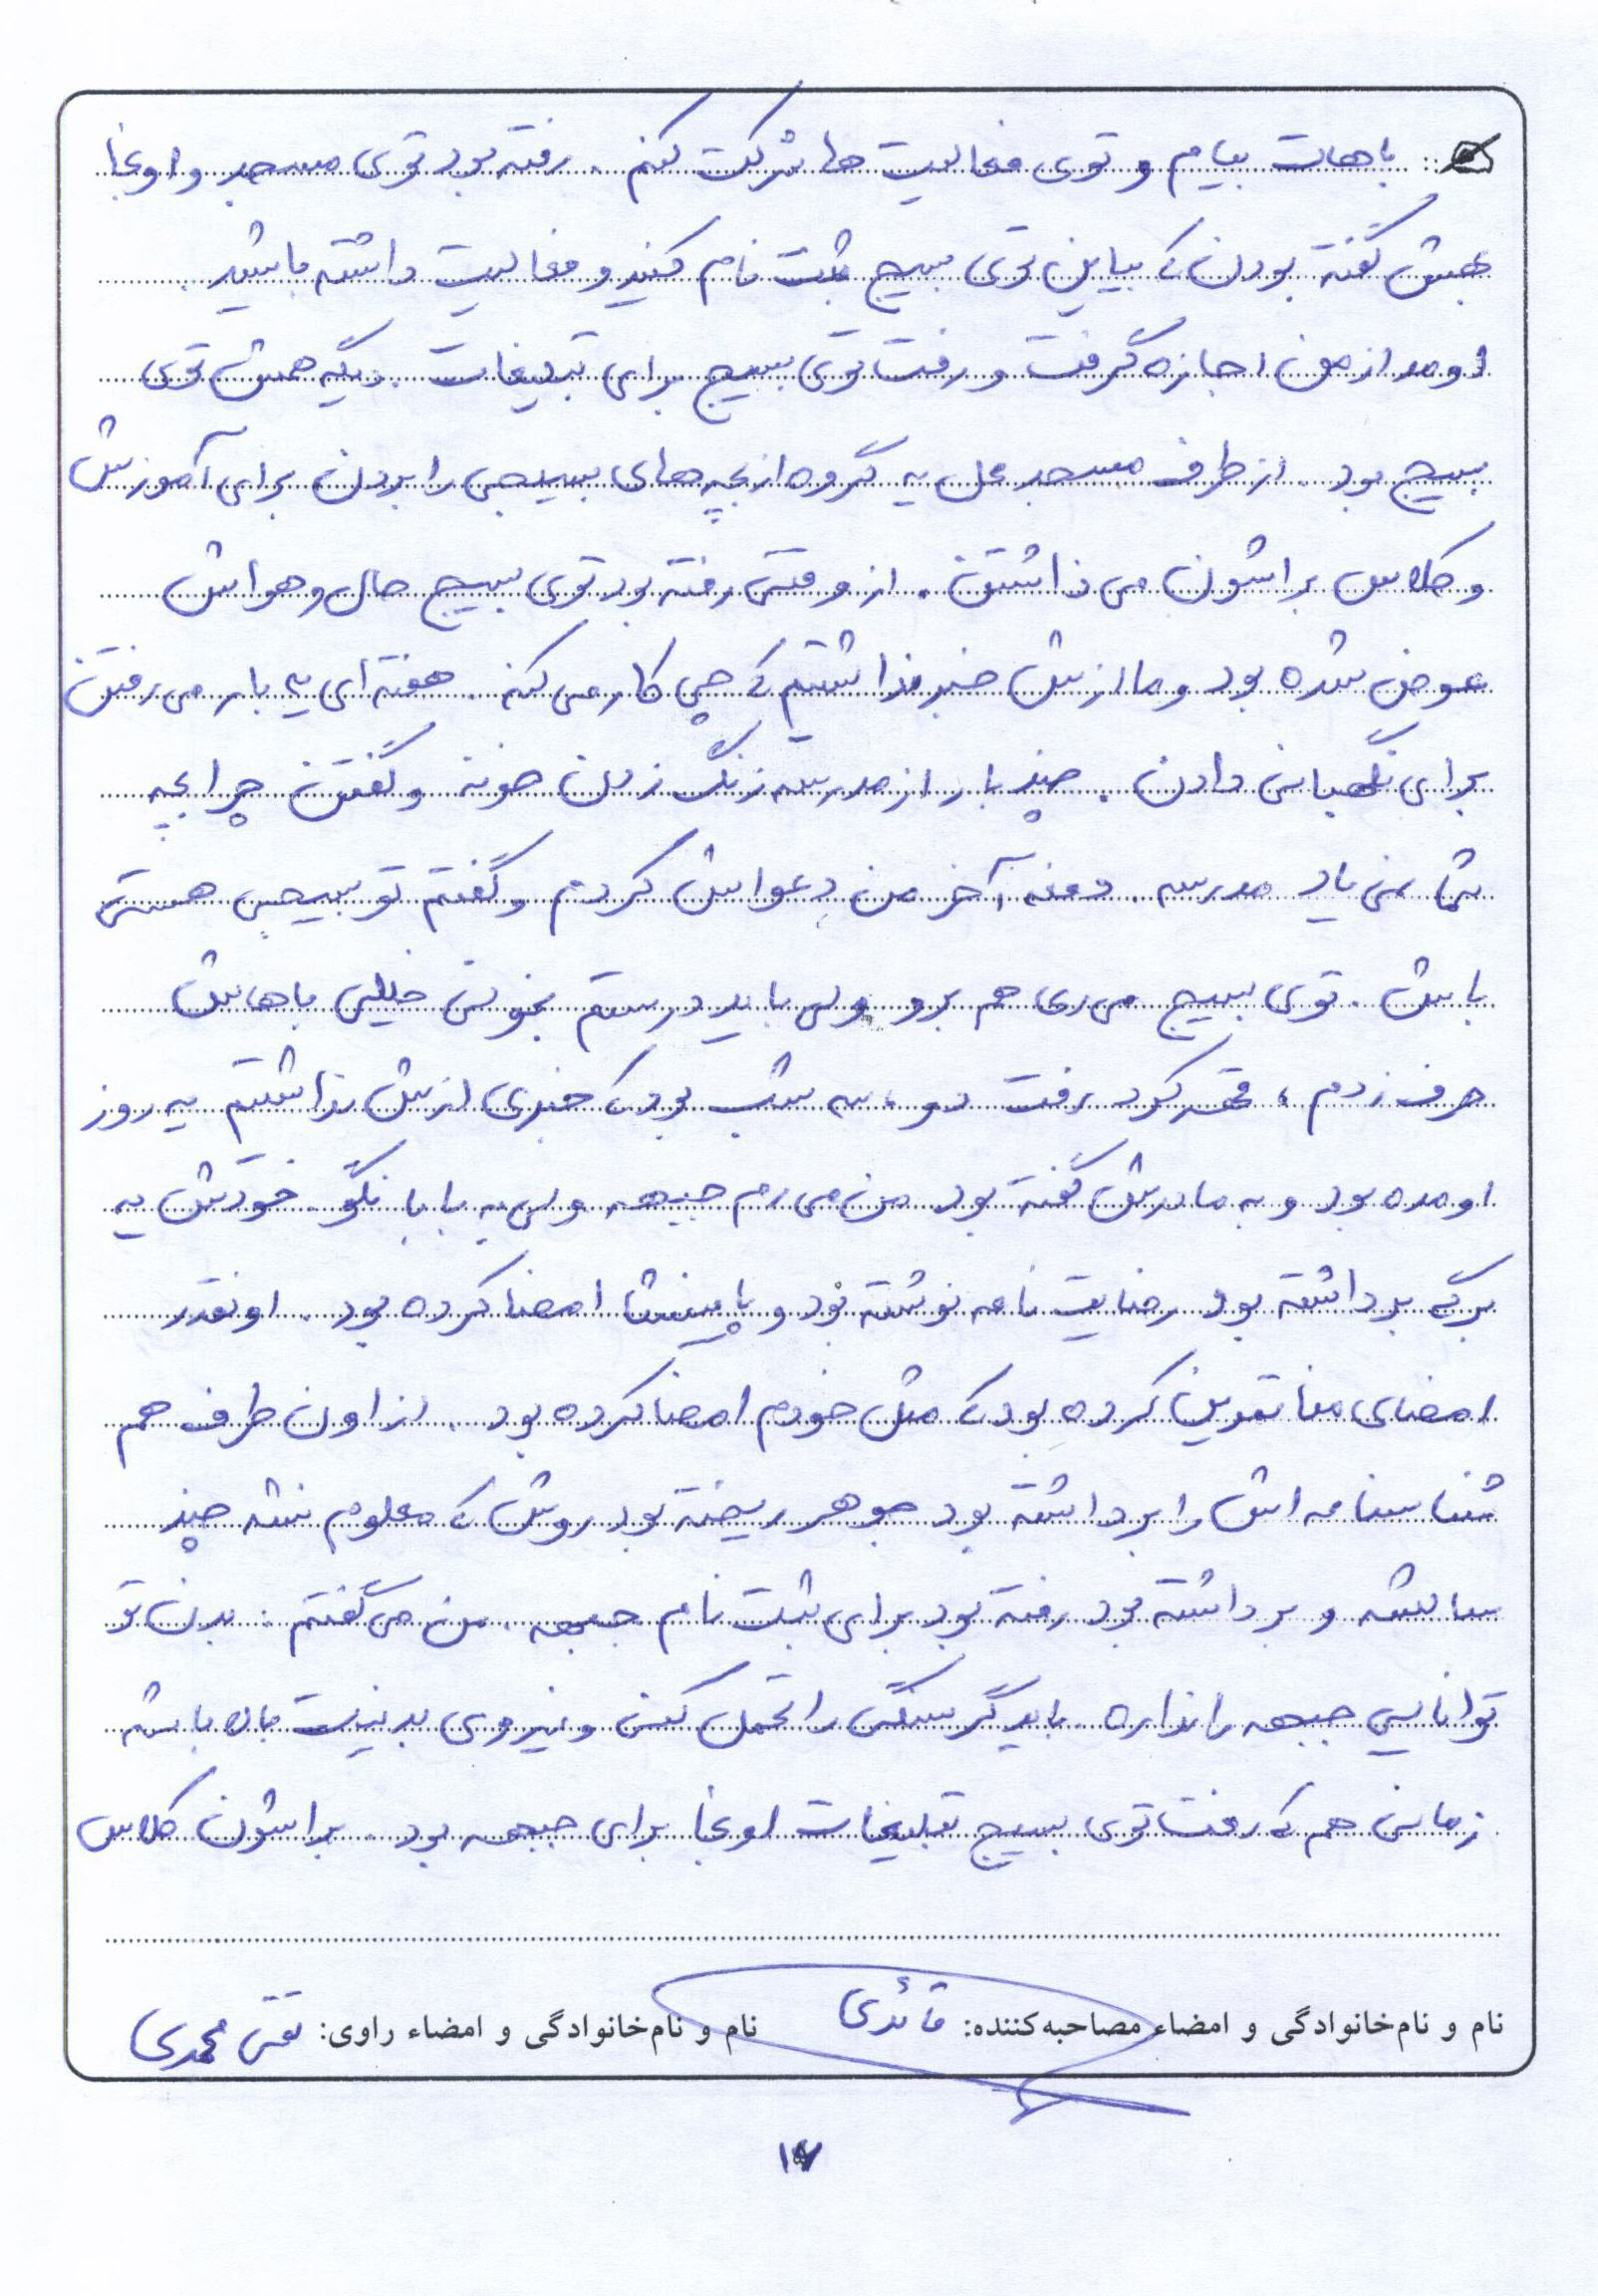 باهات بیام و توی فعالیت ها شرکت کنم. رفته بود توی مسجد و اونجا
بهش گفته بودن که بیاین توی بسیج ثبت نام کنید و فعالیت داشته باشید.
اومد از من اجازه گرفت و رفت توی بسیج برای تبلیغات. دیگه همش توی
بسیج بود. از طرف مسجد محل یه گروه از بچه های بسیجی را بردن برای آموزش
و کلاس براشون می ذاشتن. از وقتی رفته بود توی بسیج حال و هواش
عوض شده بود و ما ازش خبر نداشتیم که چی کار می کنه. هفته ای یه بار می رفتن
برای نگهبانی دادن. چند بار از مدرسه زنگ زدن خونه و گفتن چرا بچه
شما نمی یاد مدرسه. دفعه آخر من دعواش کردم و گفتم تو بسیجی هستی
باش. توی بسیج می ری هم برو ولی باید درستم بخونی خیلی باهاش
حرف زدم، قهر کرد رفت دو، سه شب بود که خبری ازش نداشتیم یه روز
اومده بود و به مادرش گفته بود من می رم جبهه ولی به بابا نگو. خودش یه
برگه برداشته بود رضایت نامه نوشته بود و پایینشا امضا کرده بود. اونقدر
امضای منا تمرین کرده بود که مثل خودم امضا کرده بود. از اون طرف هم
شناسنامه اش را برداشته بود جوهر ریخته بود روش که معلوم نشه چند
سالشه و برداشته بود رفته بود برای ثبت نام جبهه. من می گفتم: بدن تو
توانایی جبهه را نداره باید گرسنگی را تحمل کنی و نیروی بدنیت بالا باشه
زمانی هم که رفت توی بسیج تبلیغات اونجا برای جبهه بود. براشون کلاس
نام و نام‌خانوادگی و امضاء مصاحبه‌کننده: قائدی نام و نام‌خانوادگی و امضاء راوی: تقی محمدی
۱۷